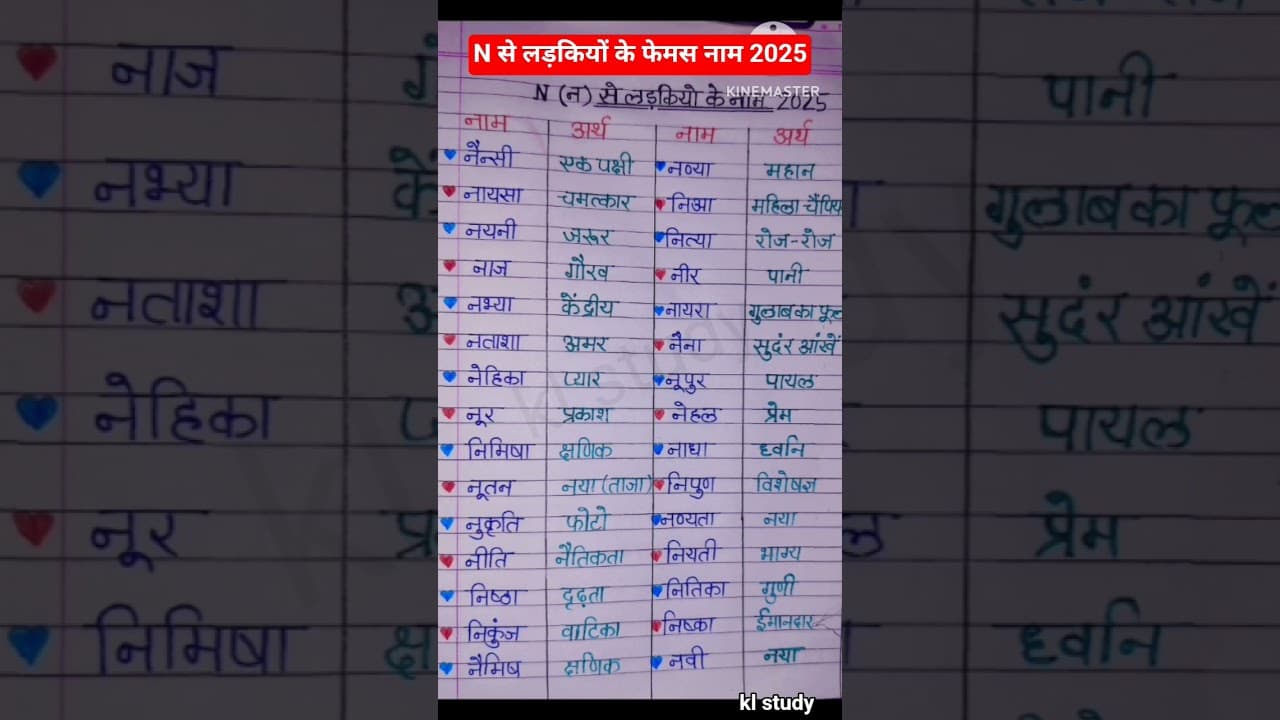 N से लड़कियों के फेमस नाम 2025
KINEMASTER
N (न) से लड़कियो के नाम 2025
नाम अर्थ नाम अर्थ
नैन्सी एक पक्षी नव्या महान
नायसा चमत्कार निआ महिला चैंपिय
नयनी जरूर नित्या रोज-रोज
नाज गौरव नीर पानी
नभ्या केंद्रीय नायरा गुलाब का फूल
नताशा अमर नैना सुदंर आंखें
नेहिका प्यार नूपुर पायल
नूर प्रकाश नेहल प्रेम
निमिषा क्षणिक नाधा ध्वनि
नूतन नया (ताजा) निपुण विशेषज्ञ
नुकृति फोटो नव्यता नया
नीति नैतिकता नियती भाग्य
निष्ठा दृढ़ता नितिका गुणी
निकुंज वाटिका निष्का ईमानदार
नैमिष क्षणिक नवी नया
kl study
kl study